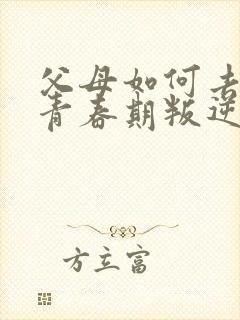 父母如何去
青春期叛逆
方立富